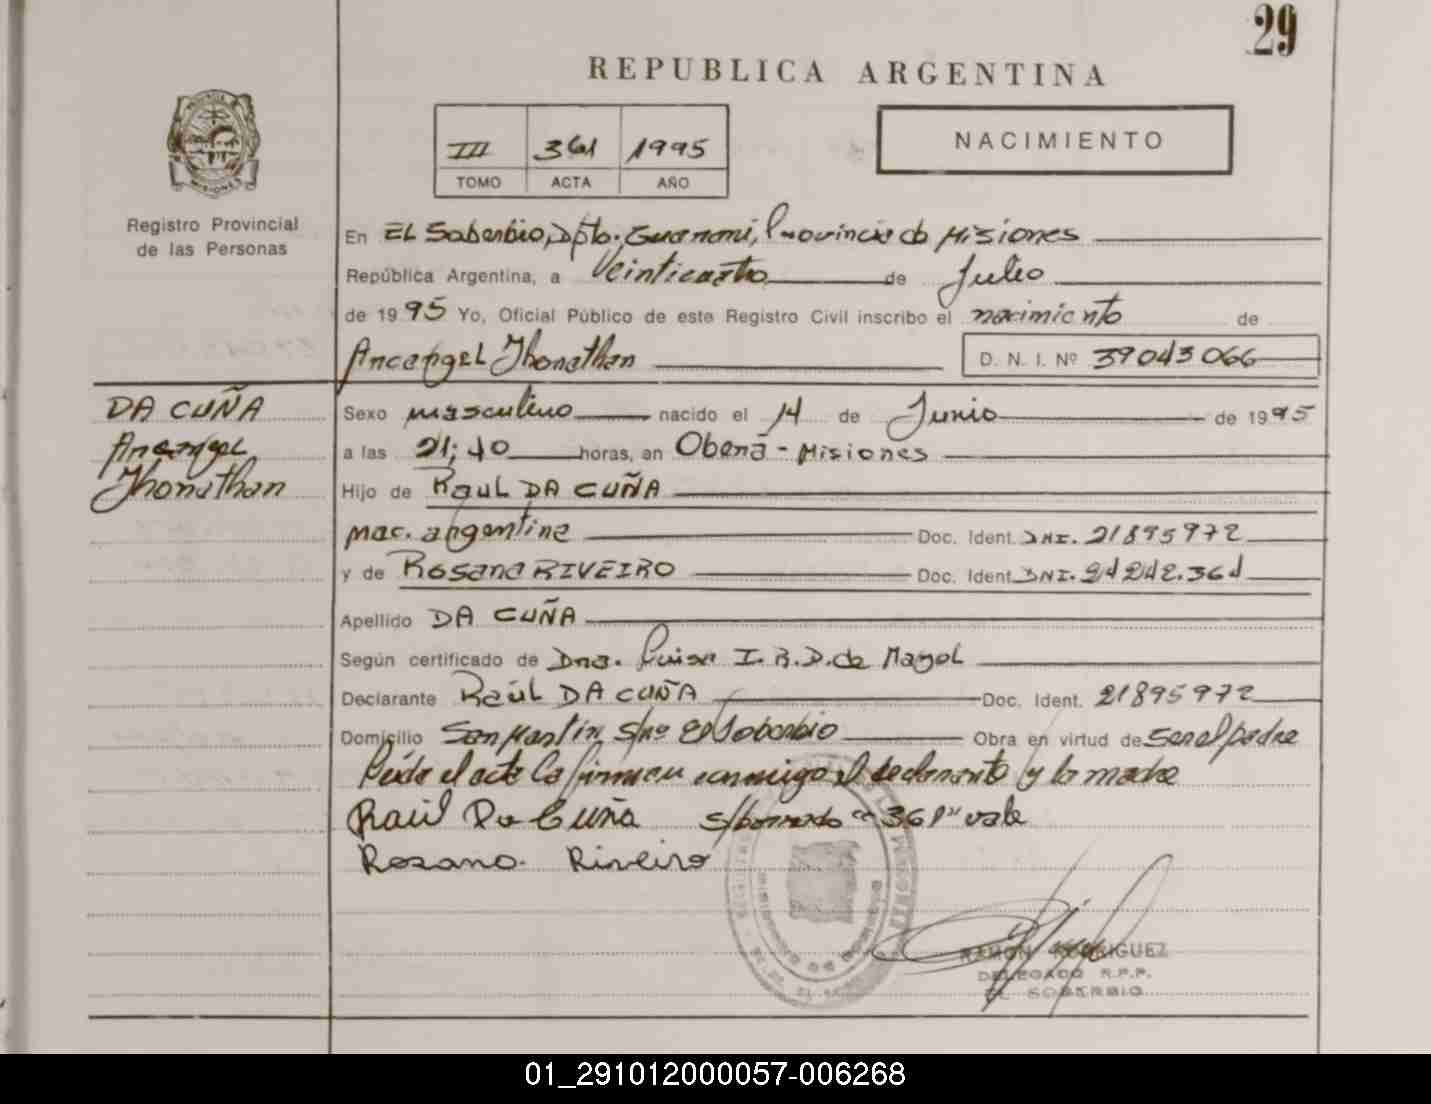 29
REPUBLICA ARGENTINA
III 361 1995
TOMO ACTA AÑO
NACIMIENTO
Registro Provincial
de las Personas
En EL Soberbio, Dpto. Guarani, Provincia de Misiones
República Argentina, a Veinticuatro de Julio
de 1995 Yo, Oficial Público de este Registro Civil inscribo el nacimiento de
Arcangel Jhonathan D. N. I. Nº 39043066
DA CUÑA
Arcangel
Jhonathan
Sexo masculino nacido el 14 de Junio de 1995
a las 21:40 horas, en Oberá - Misiones
Hijo de Raul DA CUÑA
nac. argentina Doc. Ident. DNI. 21895972
y de Rosana RIVEIRO Doc. Ident. DNI. 24242.361
Apellido DA CUÑA
Según certificado de Dra. Luisa I. R. D. de Mayol
Declarante Raúl DA CUÑA Doc. Ident. 21895972
Domicilio San Martín S/nº El Soberbio Obra en virtud de ser el padre
Leída el acta la firman conmigo el declarante y la madre
Raúl Da Cuña s/borrado "361" vale
Rosana Riveiro
RAMON RODRIGUEZ
DELEGADO R.P.P.
EL SOBERBIO
01_291012000057-006268